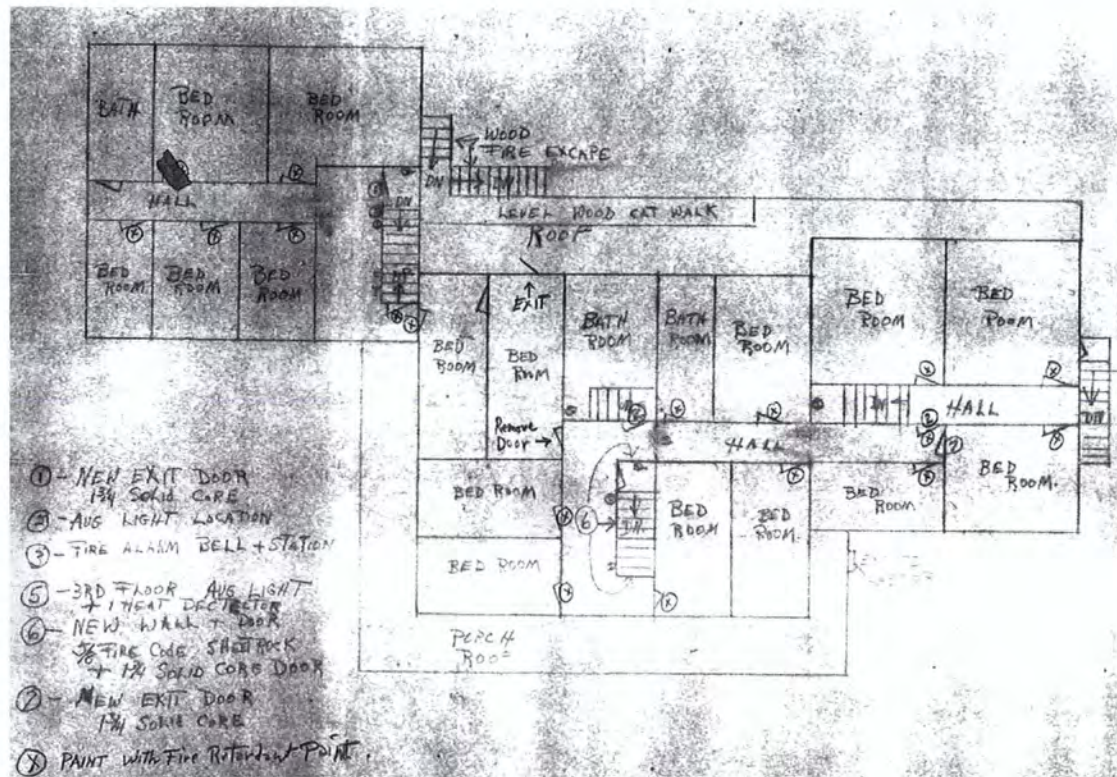 BATH
BED
ROOM
BED
ROOM
WOOD
FIRE EXCAPE
DN
DN
HALL
DN
LEVEL WOOD CAT WALK
ROOF
BED
ROOM
BED
ROOM
BED
ROOM
EXIT
BED
ROOM
BED
ROOM
BATH
ROOM
BATH
ROOM
BED
ROOM
BED
ROOM
BED
ROOM
DN
HALL
DN
Remove
Door →
HALL
BED ROOM
BED
ROOM
BED
ROOM
BED
ROOM
BED
ROOM.
6
DN
BED ROOM
PORCH
ROOF
① - NEW EXIT DOOR
1 3/4 SOLID CORE
② - AUG LIGHT LOCATION
③ - FIRE ALARM BELL + STATION
⑤ - 3RD FLOOR AUG LIGHT
+ 1 HEAT DECTECTOR
⑥ - NEW WALL + DOOR
5/8 FIRE CODE SHEETROCK
+ 1 3/4 SOLID CORE DOOR
⑦ - NEW EXIT DOOR
1 3/4 SOLID CORE
Ⓧ PAINT with Fire Retardant Paint.